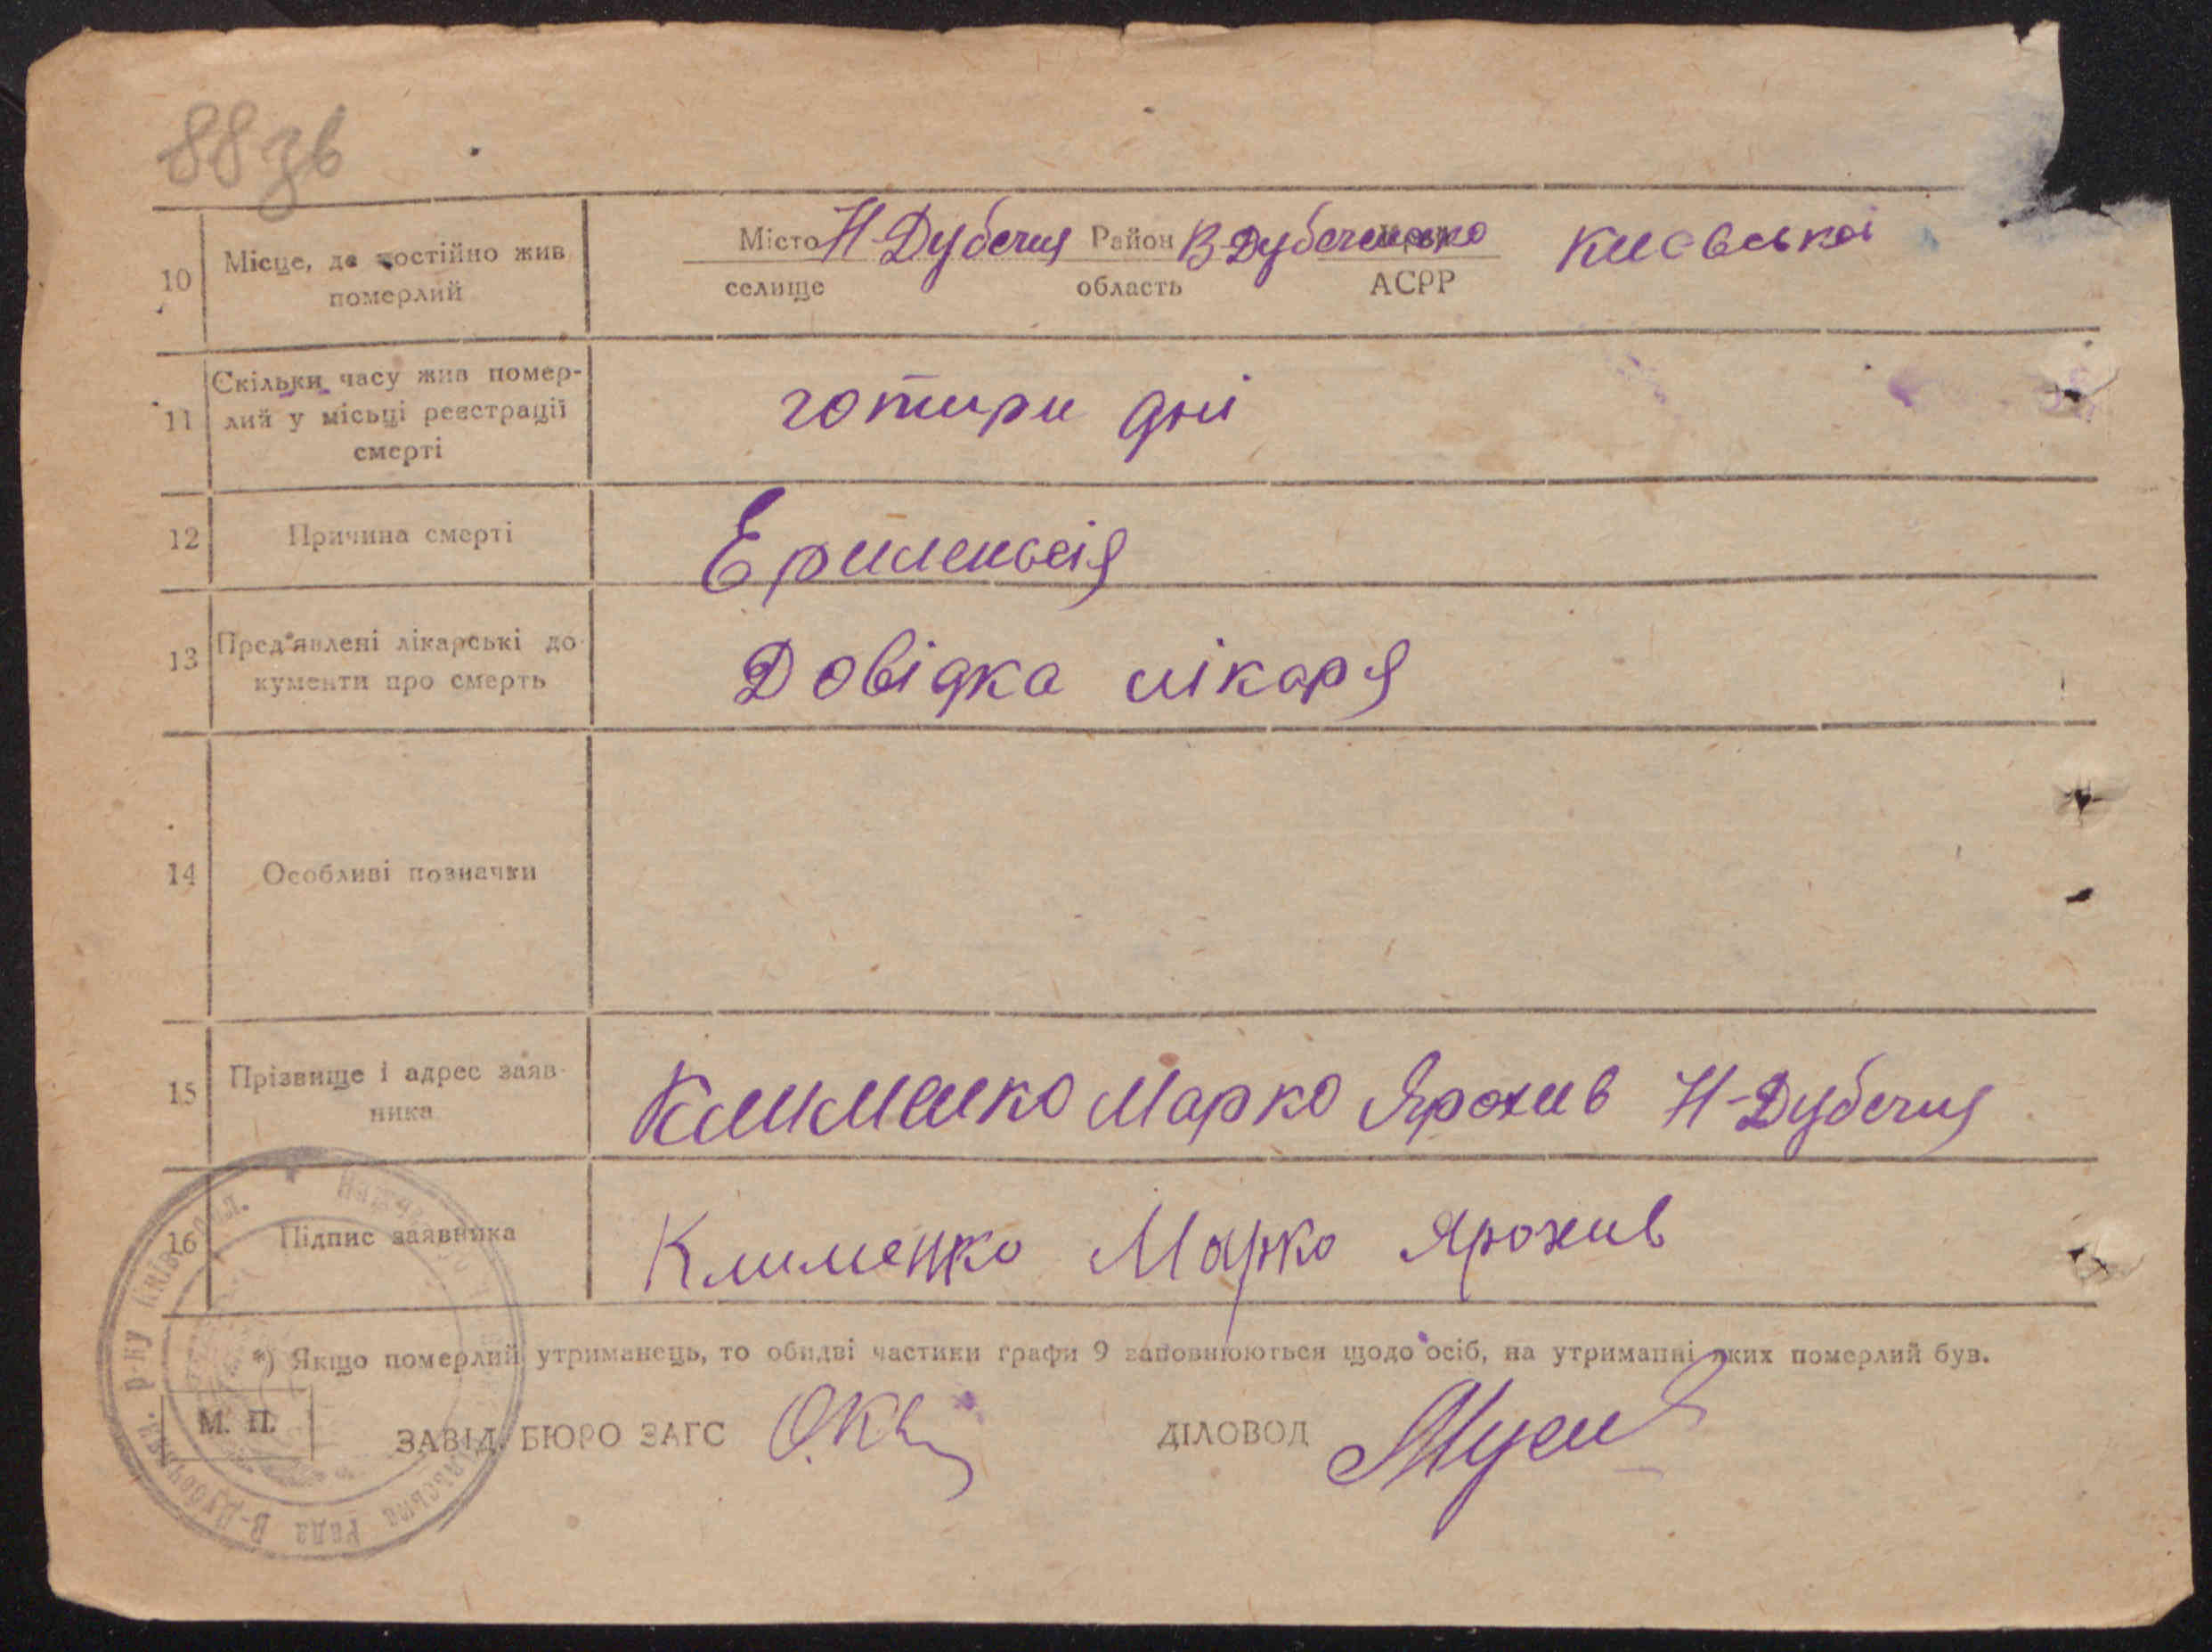 88 зв
10 Місце, де постійно жив померлий
Місто Н-Дубечня Район В-Дубеченсько Київської
селище область АСРР
11 Скільки часу жив помер-
лий у місьці реєстрації
смерті
готири дні
12 Причина смерті
Ерилепьсія
13 Пред'явлені лікарські до-
кументи про смерть
Довідка лікаря
14 Особливі позначки
15 Прізвище і адрес заяв-
ника
Клименко Марко Ярохив Н-Дубечня
16 Підпис заявника
Клименко Марко Ярохив
*) Якщо померлий утриманець, то обидві частини графи 9 заповнюються щодо осіб, на утриманні яких померлий був.
М. П.
ЗАВІД. БЮРО ЗАГС
ДІЛОВОД
В-Дубечан. р-ну Київ. обл.
рада